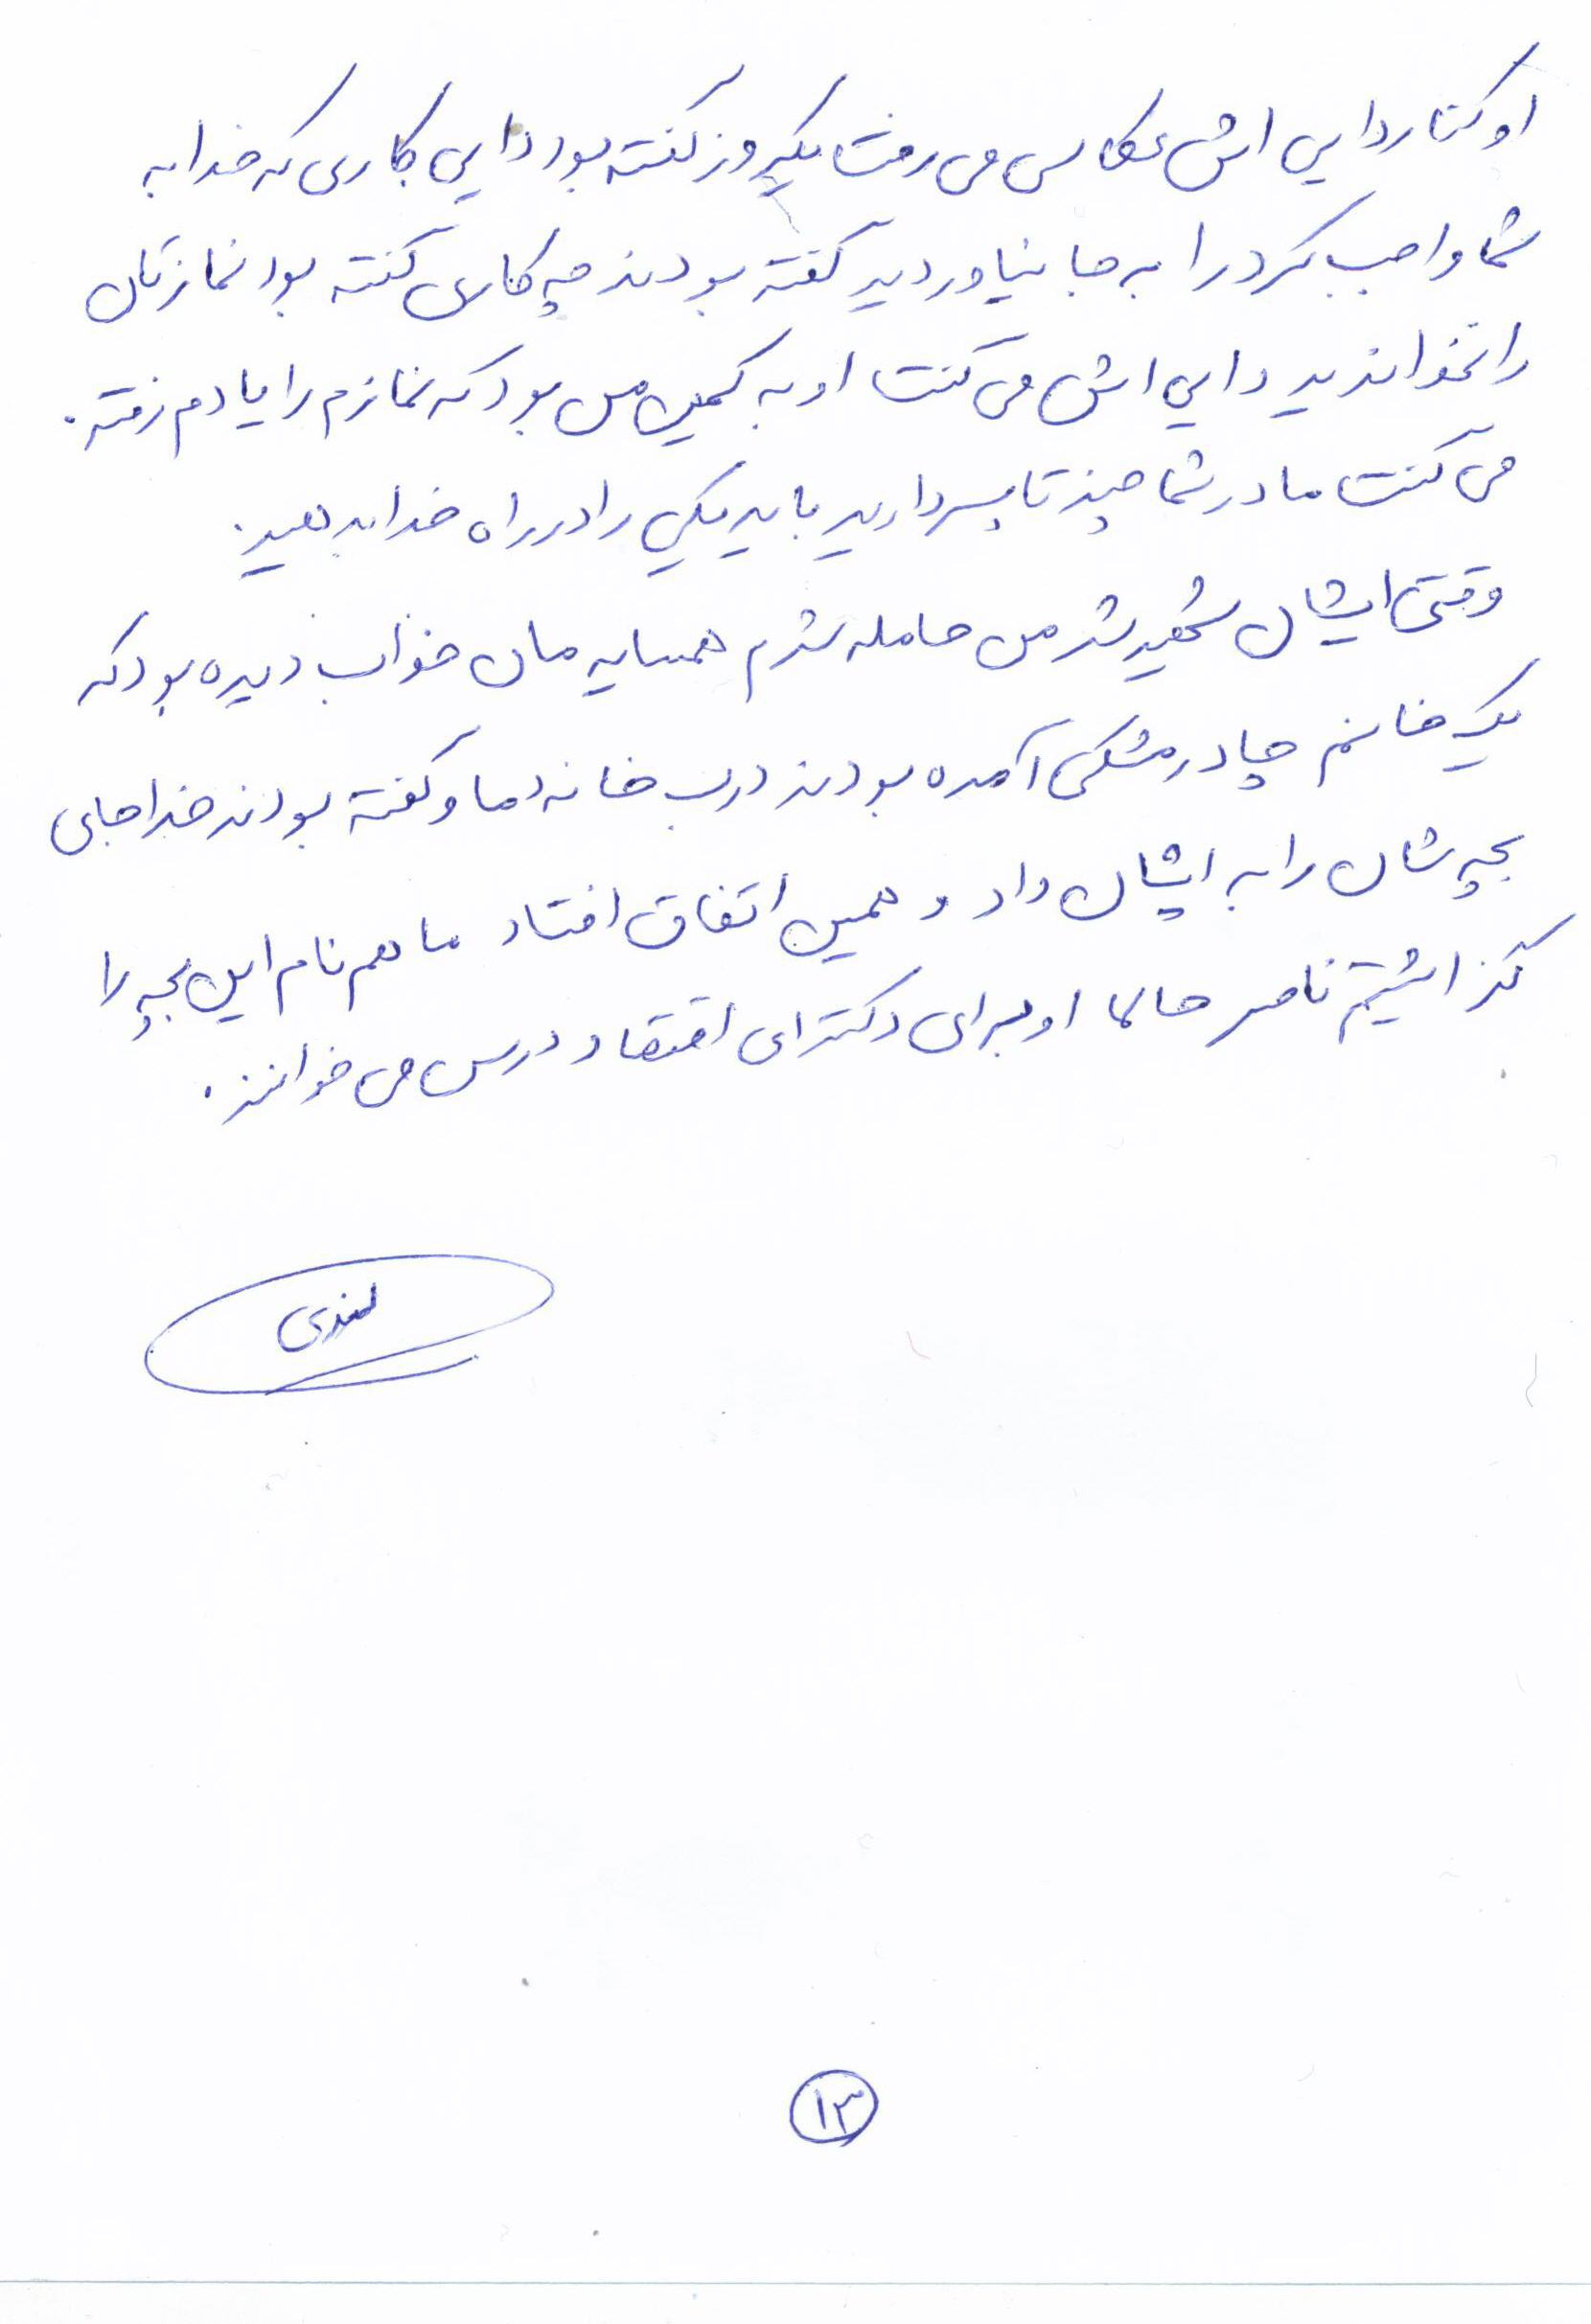 او کنار دایی اش عکاسی می رفت یکروز گفته بود دایی کاری که خدا به
شما واجب کرد را به جا نیاوردید گفته بودند چه کاری گفته بود نمازتان
را نخواندید دایی اش می گفت او به کمین من بود که نمازم را یادم نرفته.
می گفت مادر شما چند تا پسر دارید باید یکی را در راه خدا بدهید.
وقتی ایشان شهید شد من حامله شدم همسایه مان خواب دیده بود که
یک خانم چادر مشکی آمده بودند درب خانه ما و گفته بودند خدا جای
بچه شان را به ایشان داد و همین اتفاق افتاد ما هم نام این بچه را
گذاشتیم ناصر حالا او برای دکترای اقتصاد درس می خواند.
۱۳